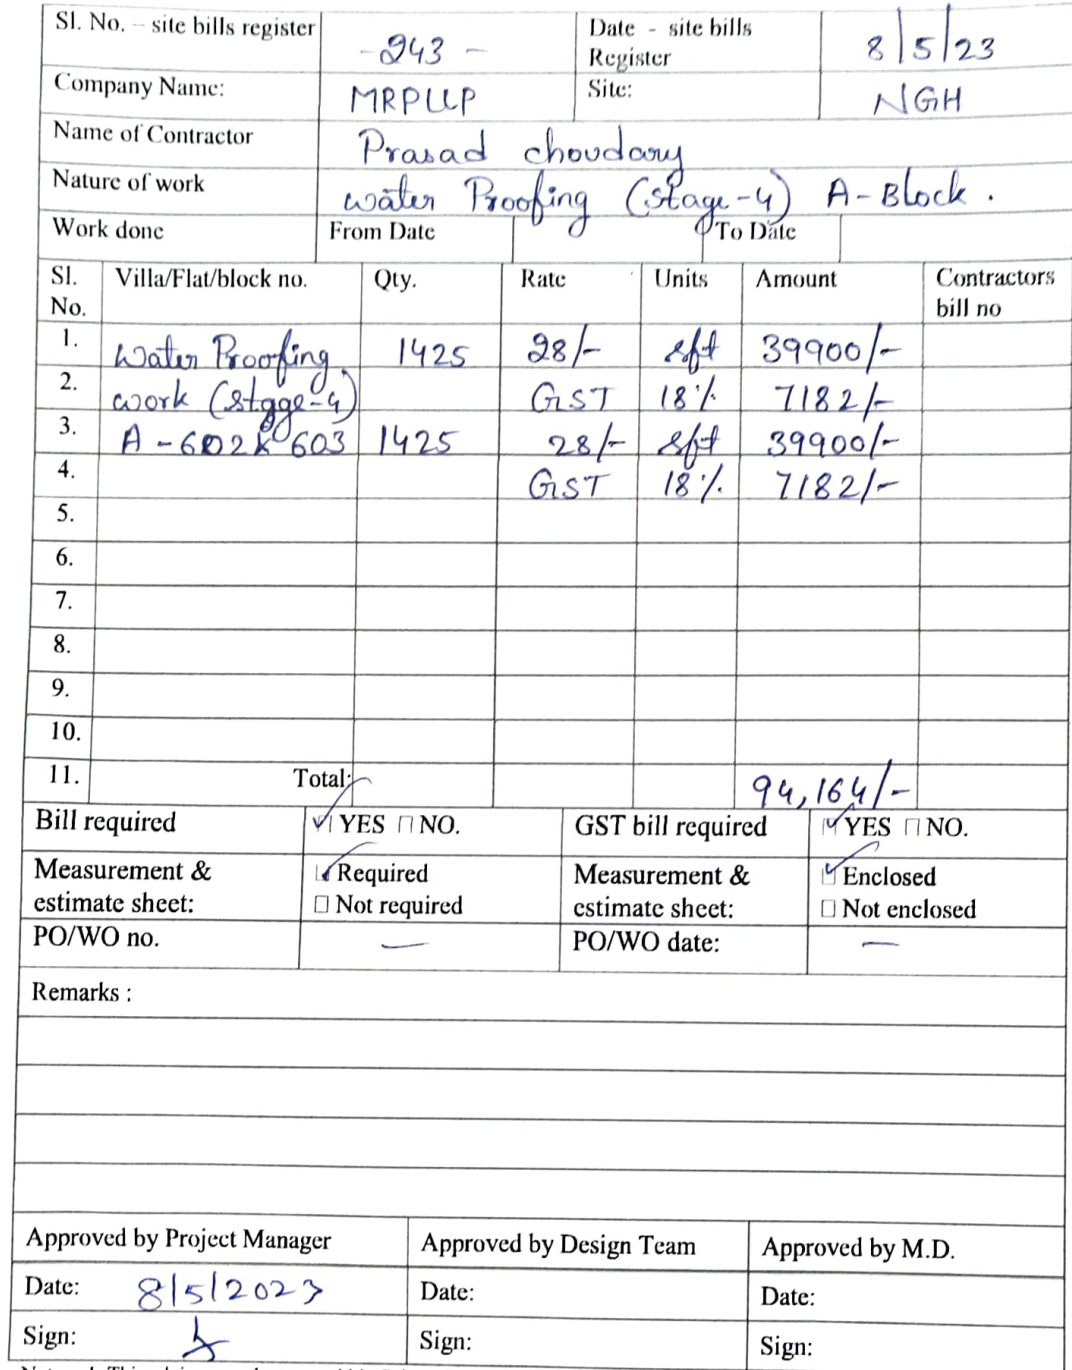 Sl. No. – site bills register - 243 - Date - site bills Register 8/5/23
Company Name: MRPLLP Site: NGH
Name of Contractor Prasad choudary
Nature of work water Proofing (Stage-4) A-Block.
Work done From Date To Date
Sl. No. Villa/Flat/block no. Qty. Rate Units Amount Contractors bill no
1. Water Proofing 1425 28/- sft 39900/-
2. work (Stage-4) GST 18% 7182/-
3. A-602 & 603 1425 28/- sft 39900/-
4. GST 18% 7182/-
5.
6.
7.
8.
9.
10.
11. Total: 94,164/-
Bill required YES NO. GST bill required YES NO.
Measurement & estimate sheet: Required Not required Measurement & estimate sheet: Enclosed Not enclosed
PO/WO no. — PO/WO date: —
Remarks :
Approved by Project Manager Approved by Design Team Approved by M.D.
Date: 8/5/2023 Date: Date:
Sign: Sign: Sign: